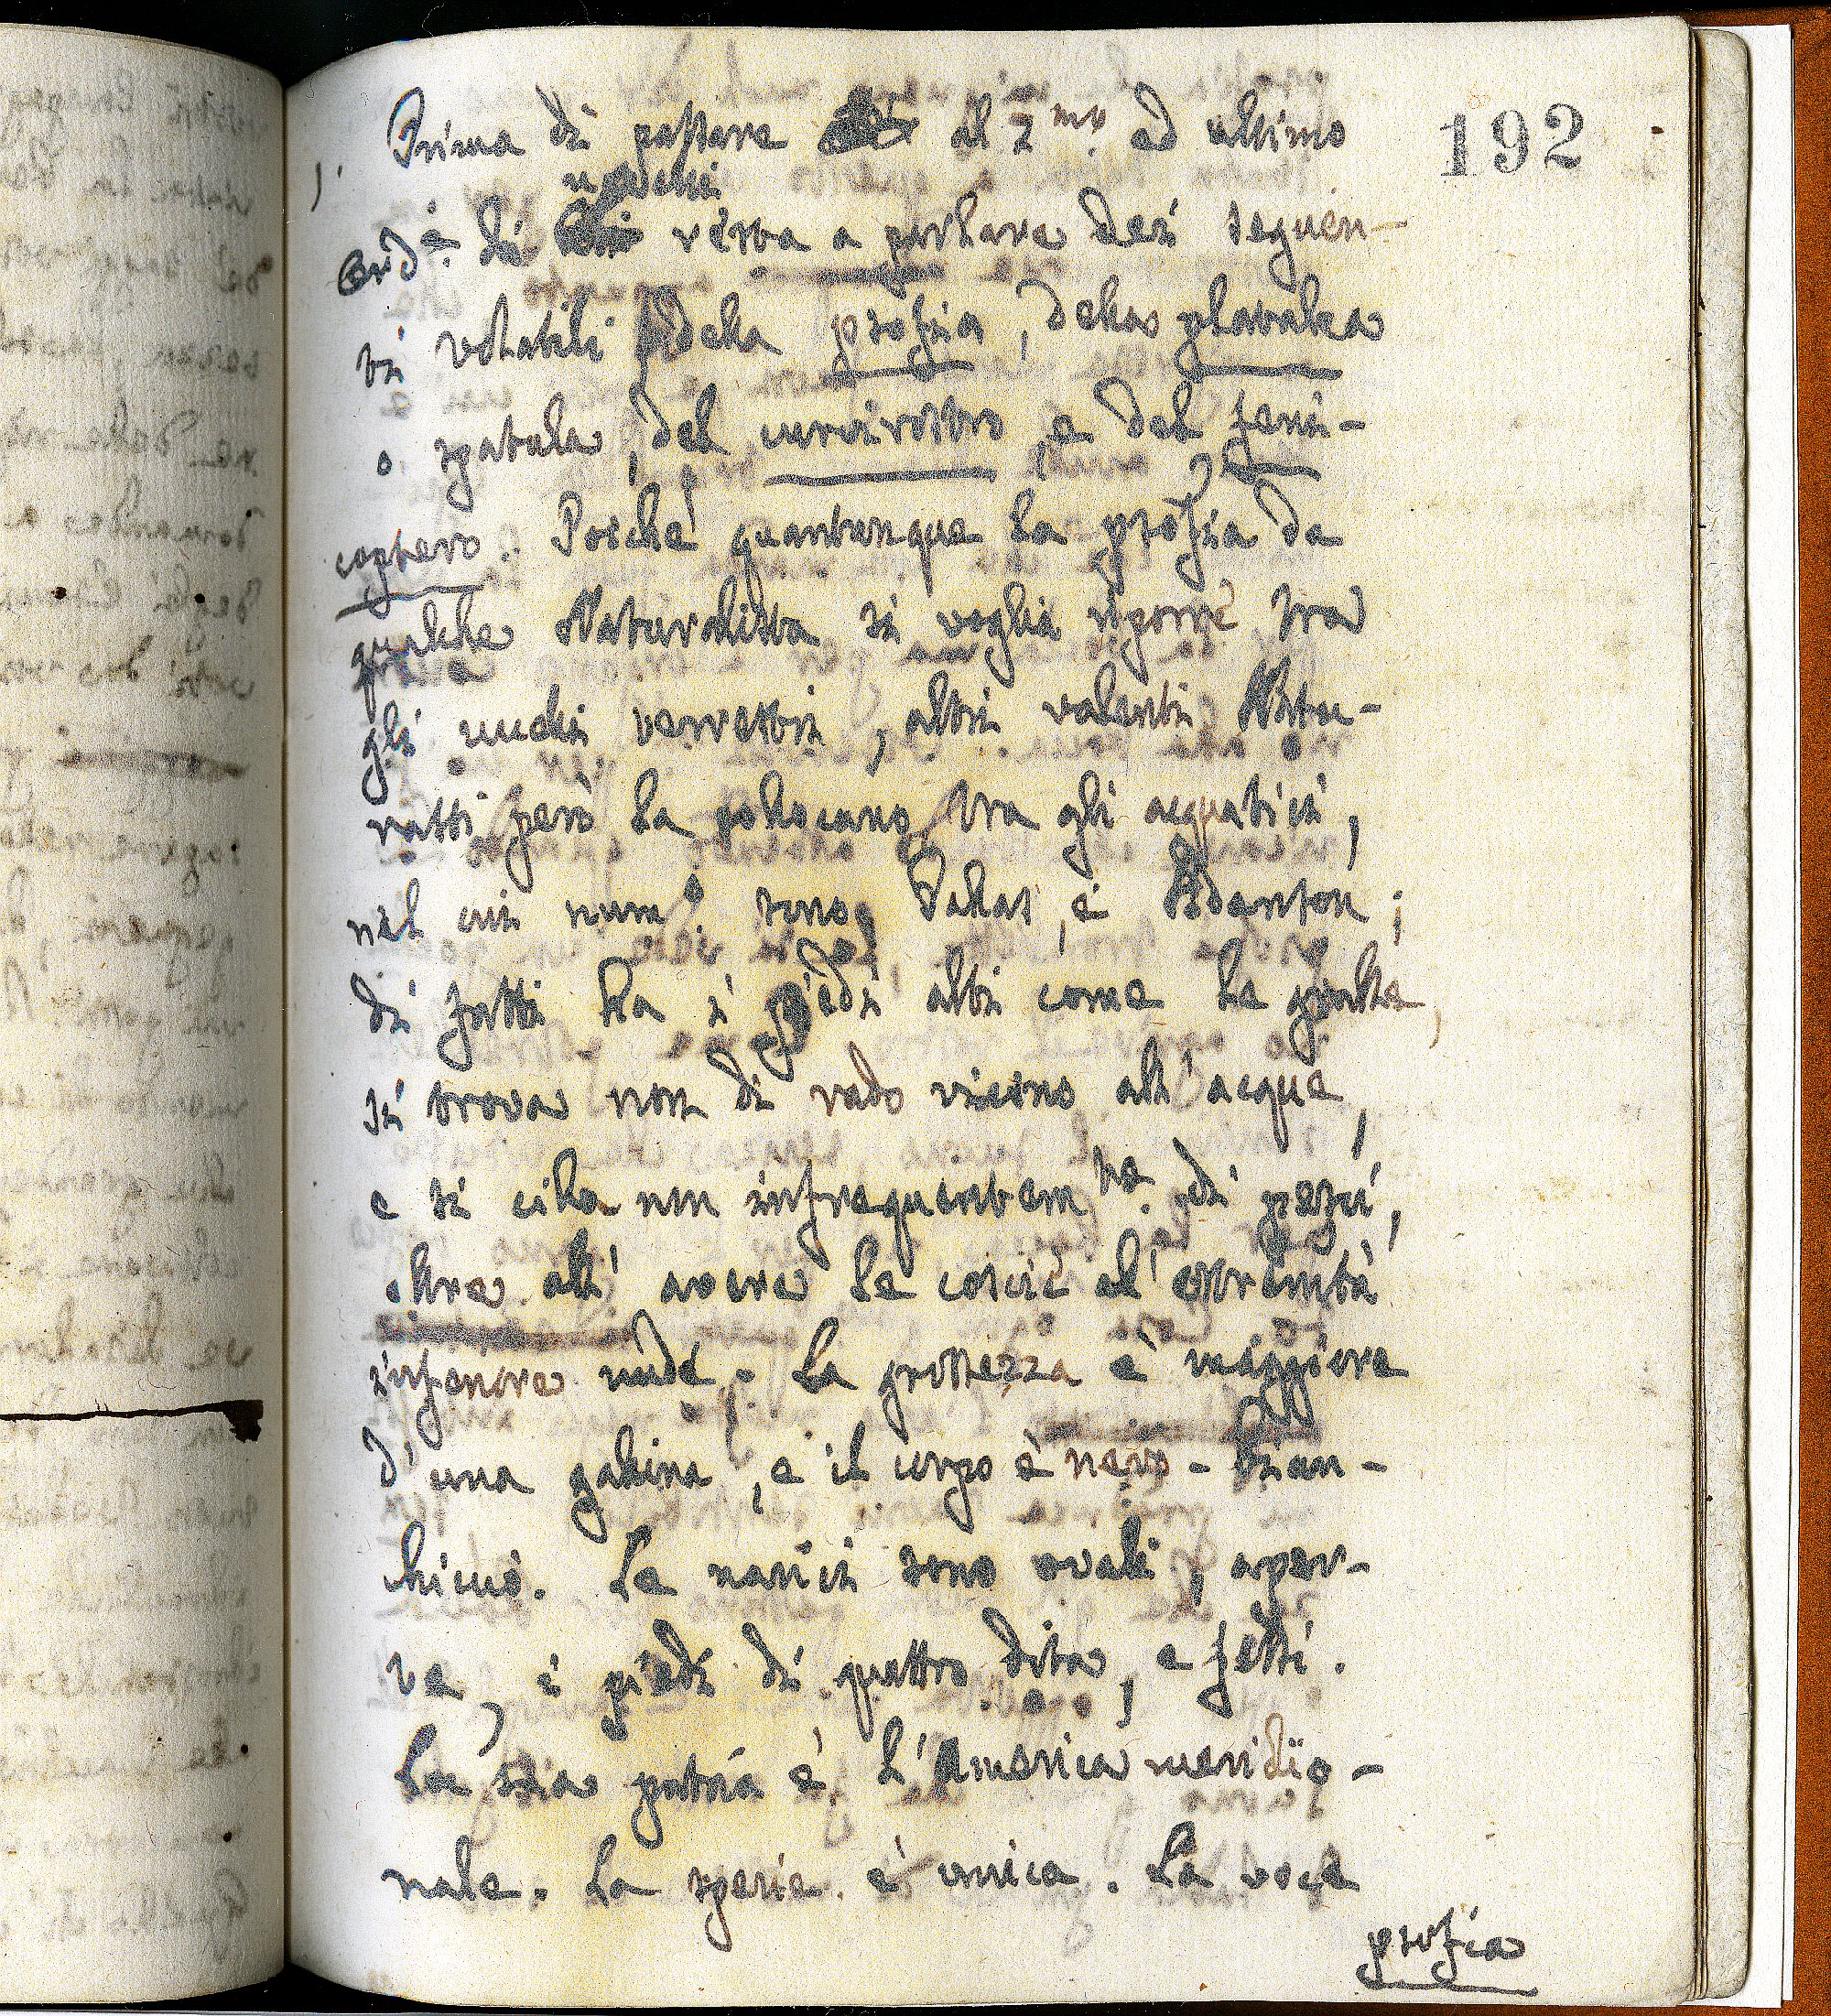 192
1. Prima di passare al 2.mo ed ultimo
ord.e di uccelli resta a parlare dei seguen-
ti volatili della psofia, della platalea
o spatula, del curvirostro, e del feni-
coptero. Poiché quantunque la psofia da
qualche Naturalista si voglia riporre tra
gli uccelli terrestri, altri valenti Natu-
ralisti però la collocano tra gli acquatici,
nel cui num.o sono Pallas, e Adanson;
di fatti ha i piedi alti come le gralle,
si trova non di rado vicino all'acque,
e si ciba non infrequentem.te di pesci,
oltre all'avere le coscie al'estremità
inferiore nude. La grossezza è maggiore
d'una gallina, e il corpo è nero-bian-
chiccio. Le narici sono ovali, aper-
te, i piedi di quattro dita, e fessi.
La sua patria è l'America meridio-
nale. La specie è unica. La voce
psofia